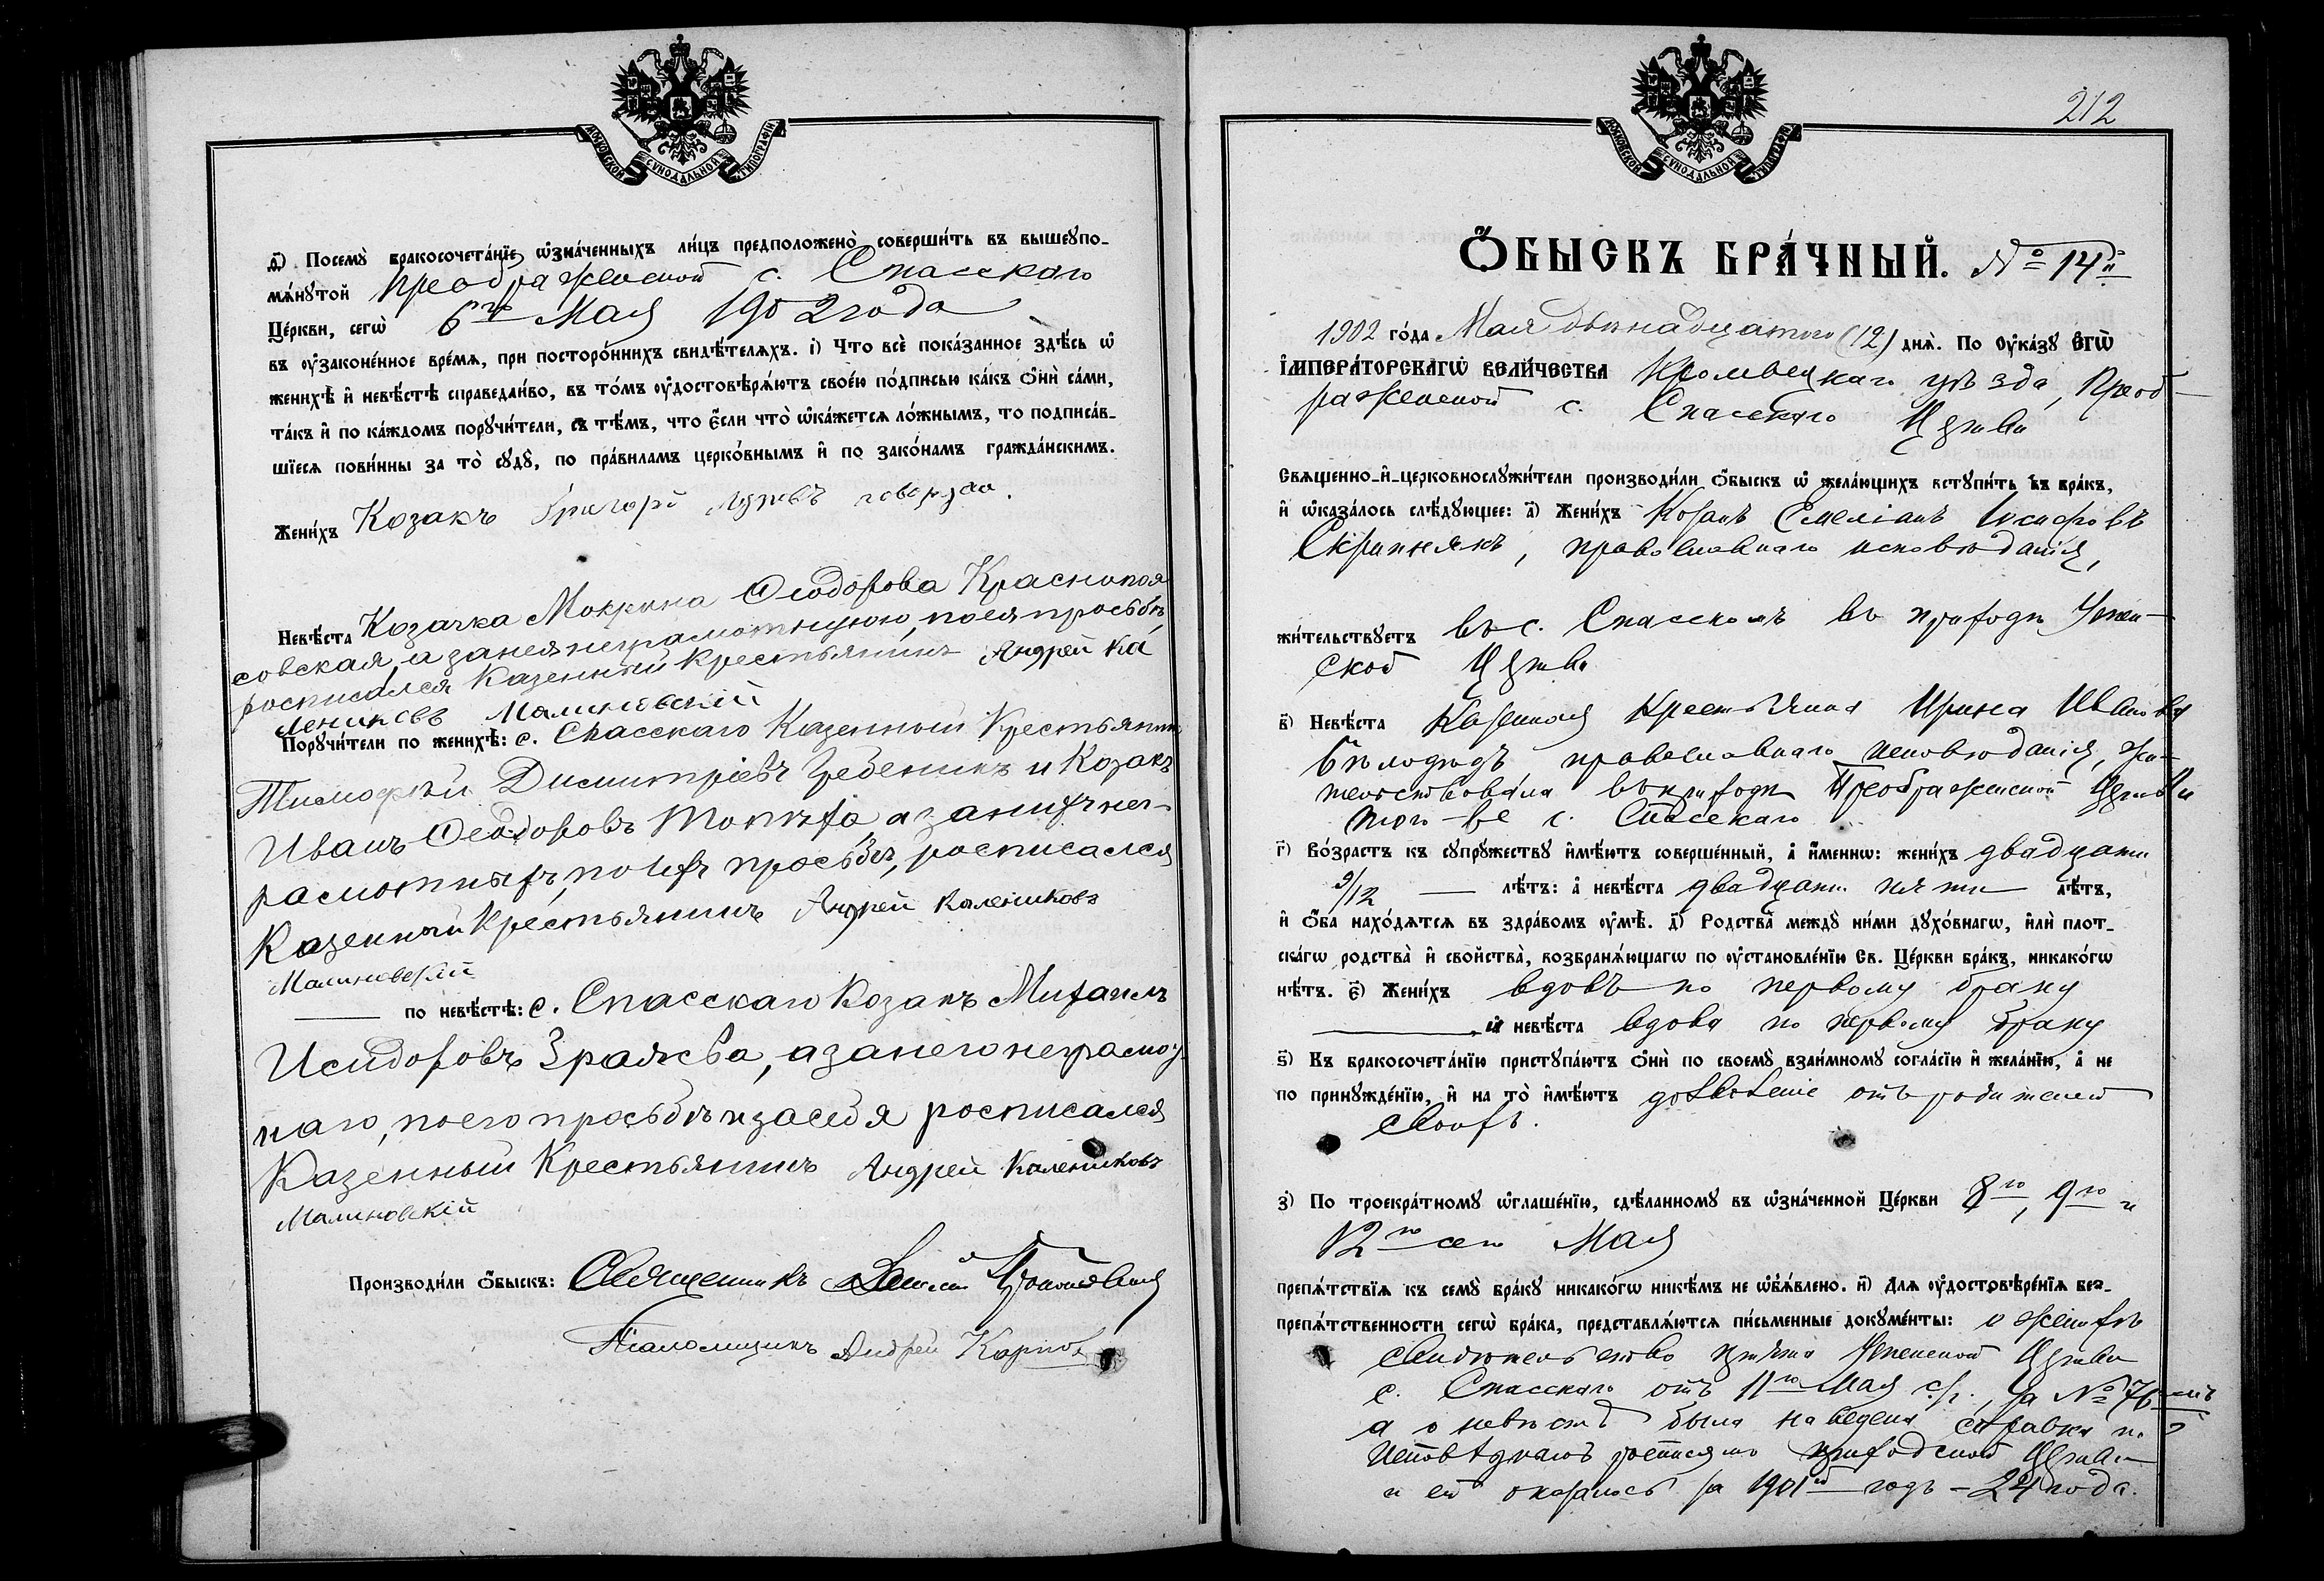 МОСКОВСКОЙ СѴНОДАЛЬНОЙ ТИПОГРАФІИ
д҃і) Посемꙋ̀ бракосочета́нїе ѡ҆зна́ченныхъ ли́цъ предположено̀ соверши́ть въ вышеꙋпо-
мѧ́нꙋтой Преображенской с. Спасскаго
Це́ркви, сегѡ̀ 6го Мая 1902 года
въ ᲂу҆законе́нное вре́мѧ, при посторо́ннихъ свидѣ́телѧхъ. і) Что всѐ пока́занное здѣ́сь ѡ҆
женихѣ̀ и҆ невѣ́стѣ справедли́во, въ то́мъ ᲂу҆достовѣрѧ́ютъ свое́ю по́дписью ка́къ ѻ҆нѝ са́ми,
та́къ и҆ по ка́ждомъ порꙋчи́тели, съ тѣ́мъ, что є҆́сли что̀ ѡ҆ка́жетсѧ ло́жнымъ, то подписа́в-
шїесѧ пови́нны за то̀ сꙋдꙋ̀, по пра́виламъ церко́внымъ и҆ по зако́намъ гражда́нскимъ.
Жени́хъ Козакъ Григорій
Невѣ́ста Козачка Мокрина Ѳеодорова Краснопоя
совская, а за нея неграмотную, по ея просьбѣ
росписался Казенный Крестьянинъ Андрей Ка
лениковъ Малиновскій
Порꙋчи́тели по женихѣ̀: с. Спасскаго Казенный Крестьянинъ
Тимофѣй Димитріевъ Гребеникъ и Козакъ
Иванъ Ѳеодоровъ Топчѣха, а за нихъ нег-
рамотныхъ, по ихъ просьбѣ, росписался
Казенный Крестьянинъ Андрей Калениковъ
Малиновскій
по невѣ́стѣ: с. Спасскаго Козакъ Михаилъ
Исидоровъ Зражева, а за него неграмот
наго, по его просьбѣ и за себя росписался
Казенный Крестьянинъ Андрей Калениковъ
Малиновскій
Производи́ли ѻ҆́быскъ: Священникъ
Псаломщикъ Андрей Карпов
212
МОСКОВСКОЙ СѴНОДАЛЬНОЙ ТИПОГРАФІИ
Ѻ҆́БЫСКЪ БРА́ЧНЫЙ. № 14й
1902 го́да Мая двѣнадцатого (12) днѧ̀. По Ѹ҆ка́зꙋ Є҆гѡ̀
І҆мпера́торскагѡ вели́чества Кролевецкаго уѣзда, Преоб-
раженской с. Спасскаго Церкви
Свѧщенно-и҆-церковнослꙋжи́тели производи́ли ѻ҆́быскъ ѡ҆ жела́ющихъ встꙋпи́ть въ бра́къ,
и҆ ѡ҆каза́лось слѣ́дꙋющее: а҃) Жени́хъ Козакъ Емеліанъ Іосифовъ
Скрипнякъ, православнаго исповѣданія,
жи́тельствꙋетъ въ с. Спасскомъ въ приходѣ Успен-
ской Церкви
в҃) Невѣ́ста Казенная Крестьянка Ирина Иванова
Бѣлодѣдъ православнаго исповѣданія, жи-
тельствовала въ приходѣ Преображенской Церкви
того-же с. Спасскаго
г҃) Во́зрастъ къ сꙋпрꙋ́жествꙋ и҆мѣ́ютъ соверше́нный, а҆ и҆́меннѡ: жени́хъ двадцати
9/12 — лѣ́тъ: а҆ невѣ́ста двадцати пяти лѣ́тъ,
и҆ ѻ҆́ба нахо́дѧтсѧ въ здра́вомъ ᲂу҆мѣ̀. д҃) Родства̀ междꙋ̀ ни́ми дꙋхо́внагѡ, и҆лѝ плот-
ска́гѡ родства̀ и҆ свойства̀, возбранѧ́ющагѡ по ᲂу҆становле́нїю Св. Це́ркви бра́къ, никако́гѡ
нѣ́тъ. є҃) Жени́хъ вдовъ по первому браку
, а҆ невѣ́ста вдова по первому браку
ѕ҃) Къ бракосочета́нїю пристꙋпа́ютъ ѻ҆нѝ по своемꙋ̀ взаи́мномꙋ согла́сїю и҆ жела́нїю, а҆ не
по принꙋжде́нїю, и҆ на то̀ и҆мѣ́ютъ дозволеніе отъ родителей
своихъ.
з҃) По троекра́тномꙋ ѡ҆глаше́нїю, сдѣ́ланномꙋ въ ѡ҆зна́ченной Це́ркви 8го, 9го и
12го сего Мая
препѧ́тствїѧ къ семꙋ̀ бра́кꙋ никако́гѡ никѣ́мъ не ѡ҆б̾ѧ́влено. и҃) Длѧ ᲂу҆достовѣре́нїѧ без-
препѧ́тственности сегѡ̀ бра́ка, представлѧ́ютсѧ пи́сьменные докꙋме́нты: о женихѣ
свидѣтельство причта Успенской Церкви
с. Спасскаго отъ 11го Мая с/г., за № 76
а о невѣстѣ была наведена справка по
исповѣднымъ росписямъ приходской Церкви
и ей оказалось за 1901й годъ - 24 года.